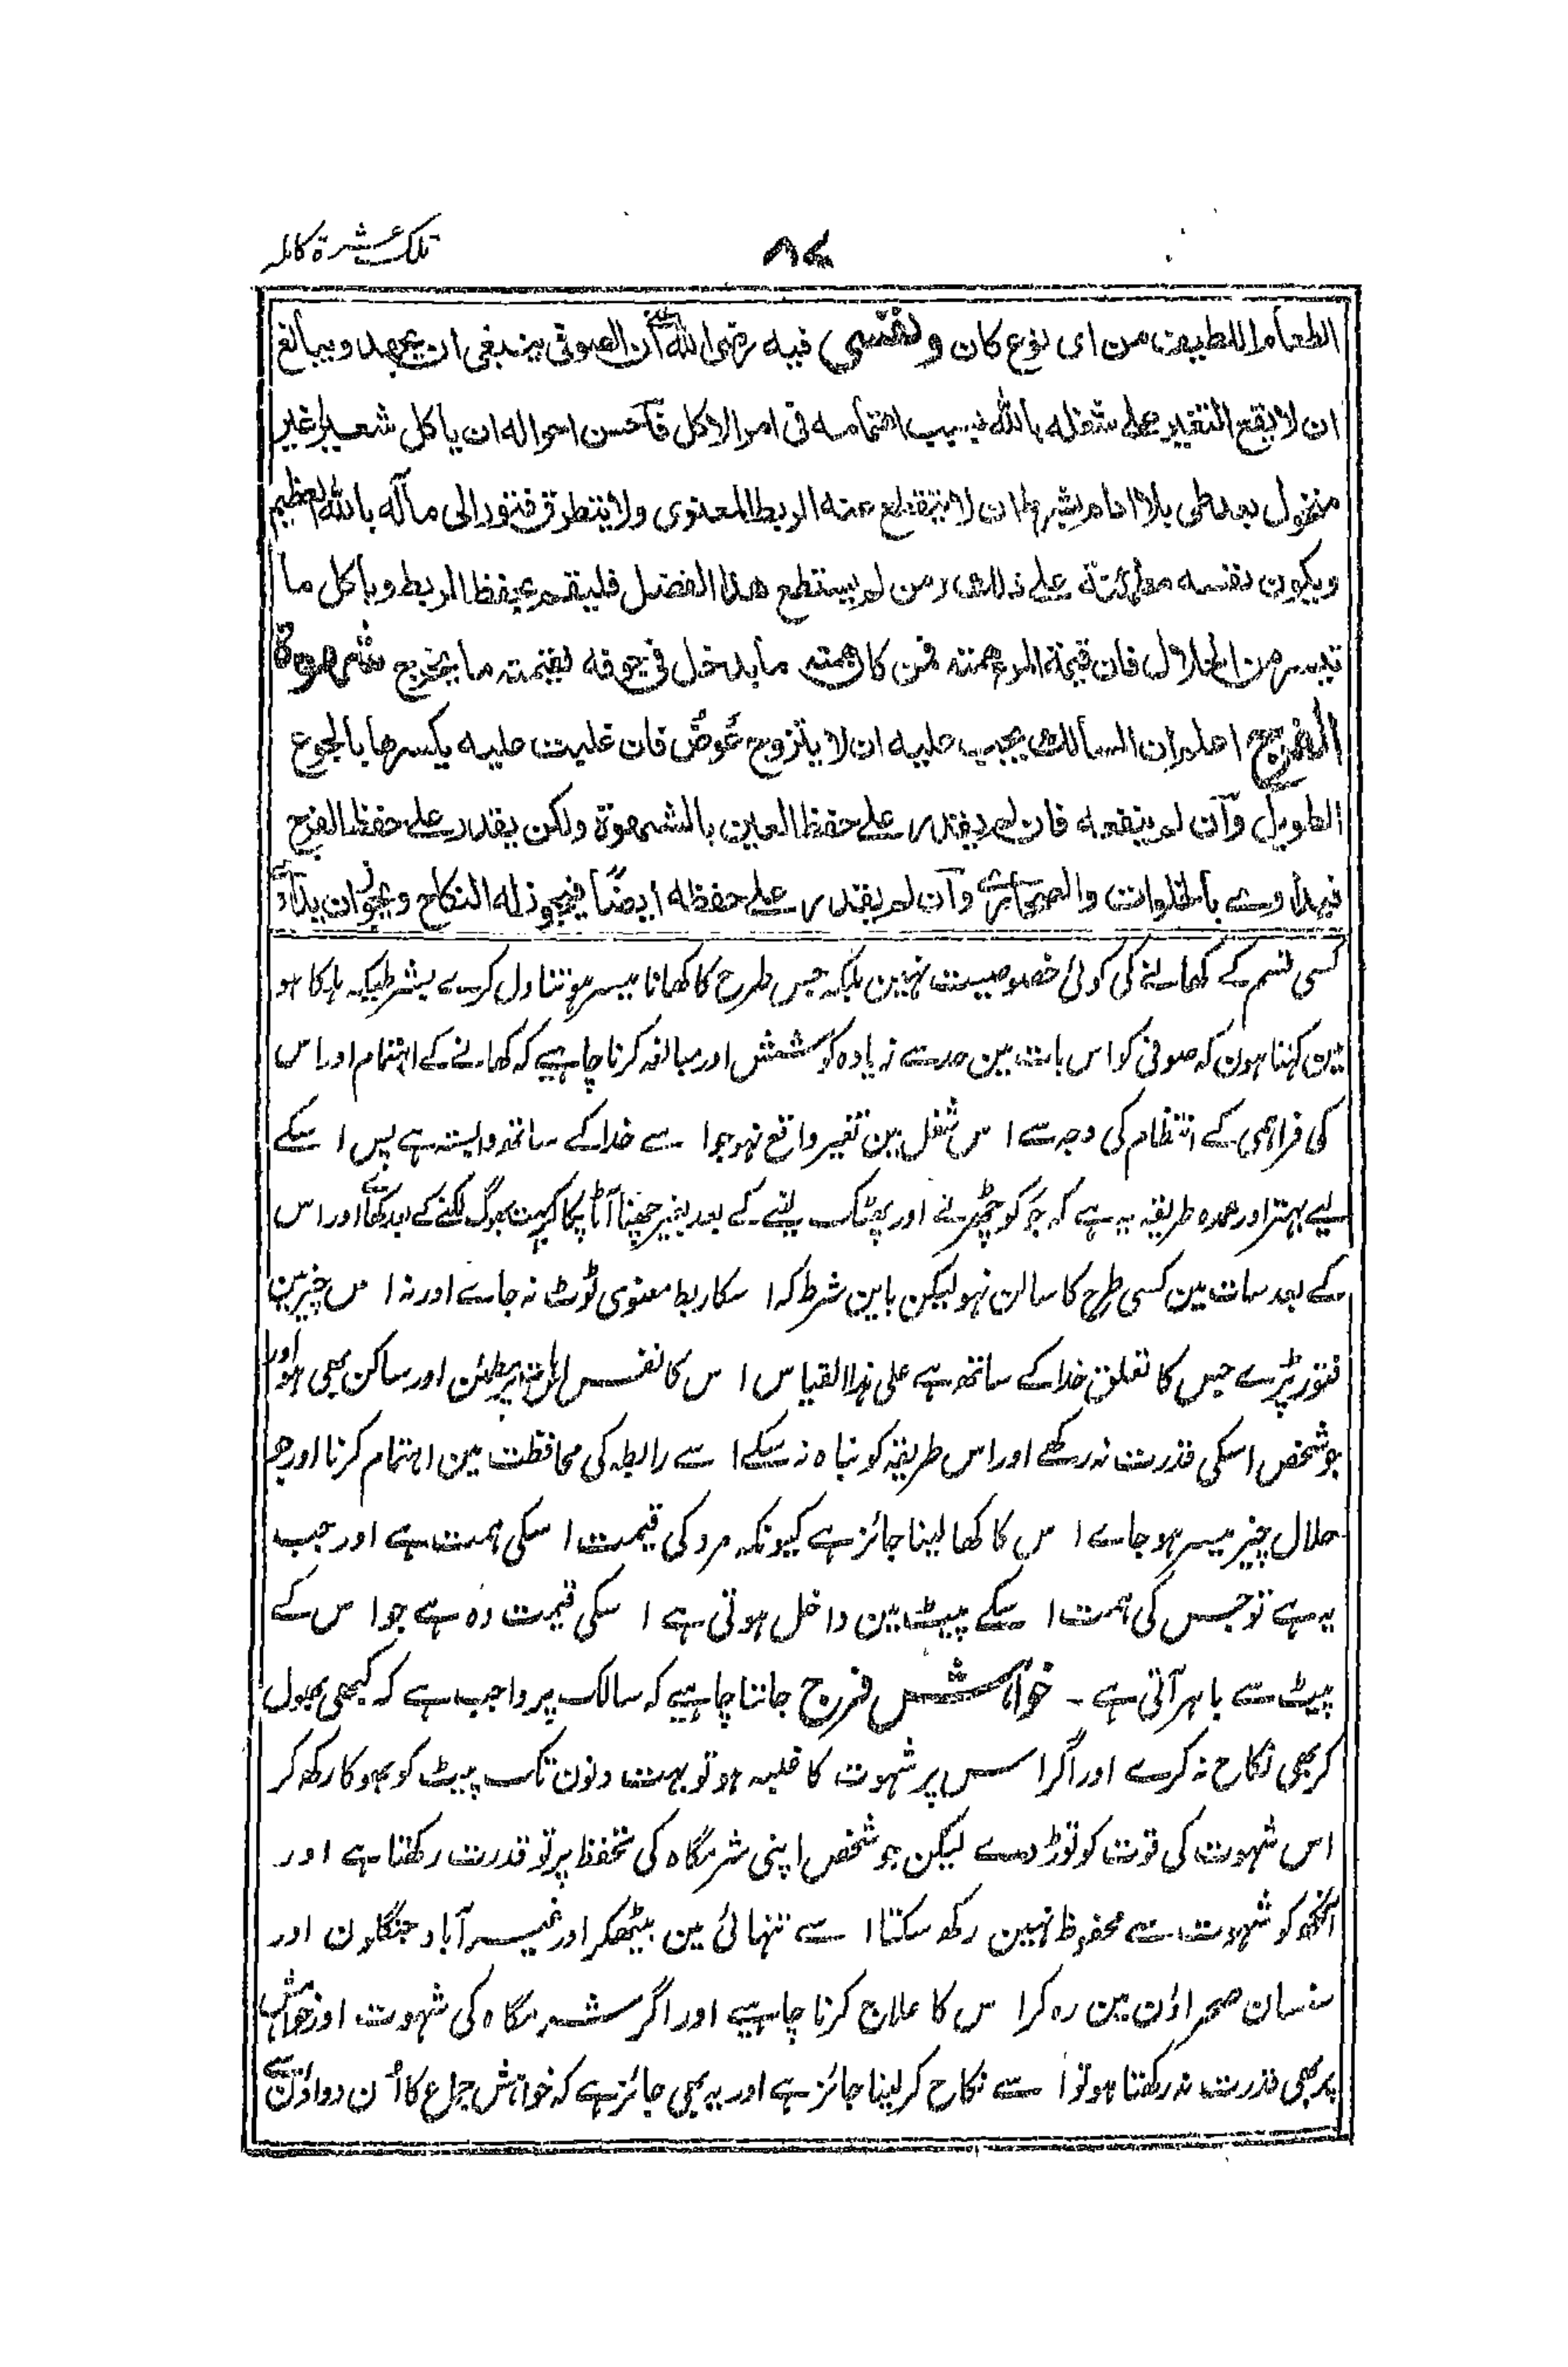 تلک عشرۃ کاملہ
۸۷
الطعام اللطیف من ای نوع کان ونفسی فیہ رضی اللہ ان الصوفی ینبغی ان یجھد ویبالغ
ان لا یقع التغیر علی شغلہ باللہ بسبب اھتمامہ فی امر الاکل فاحسن احوالہ ان یاکل شعیرا غیر
منخول بلا ادام بشرط ان لا ینقطع عنہ الربط المعنوی ولا یتطرق فتور الی مآلہ باللہ العظیم
ویکون نفسہ مطمئنۃ علی ذالک ومن لم یستطع ھذا الفضل فلیقم بحفظ الربط ویاکل ما
تیسر من الحلال فان قیمۃ المرء ھمتہ فمن کان ھمتہ ما یدخل فی جوفہ فقیمتہ ما یخرج شھوۃ
الفرج اعلم ان السالک یجب علیہ ان لا یتزوج عوض فان غلبت علیہ یکسرھا بالجوع
الطویل وان لم ینفعہ فان لم یقدر علی حفظ العین بالشھوۃ ولکن یقدر علی حفظ الفرج
فیداوی بالخلوات والصحاری وان لم یقدر علی حفظہ ایضًا فیجوز لہ النکاح ویجوز ان
کسی قسم کے کھانے کی کوئی خصوصیت نہین بلکہ جس طرح کا کھانا میسر ہو تناول کرے بشرطیکہ ہلکا ہو
مین کہتا ہون کہ صوفی کو اس بات مین حد سے زیادہ کوشش اور مبالغہ کرنا چاہیے کہ کھانے کے اہتمام اور اس
کی فراہمی کے انتظام کی وجہ سے اس شغل مین تغیر واقع نہو جو اسے خدا کے ساتھ وابستہ ہے پس اسکے
لیے بہتر اور عمدہ طریقہ یہ ہے کہ جَو کو چھڑنے اور پھٹک لینے کے بعد بغیر چھنا آٹا پکا کر بہت بھوک لگنے کے بعد کھائے اور اس
کے بعد سات مین کسی طرح کا سالن نہو لیکن باین شرط کہ اسکا ربط معنوی ٹوٹ نہ جاے اور نہ اس چیز مین
فتور پڑے جس کا تعلق خدا کے ساتھ ہے علی ہذا القیاس اس کا نفس اس پر مطمئن اور ساکن بھی ہو اور
جو شخص اسکی قدرت نہ رکھے اور اس طریقہ کو نباہ نہ سکے اسے رابطہ کی محافظت مین اہتمام کرنا اور جو
حلال چیز میسر ہو جاے اس کا کھا لینا جائز ہے کیونکہ مرد کی قیمت اسکی ہمت ہے اور جب
یہ ہے تو جس کی ہمت اسکے پیٹ مین داخل ہوتی ہے اسکی قیمت وہ ہے جو اس کے
پیٹ سے باہر آتی ہے ۔ خواہش فرج جاننا چاہیے کہ سالک پر واجب ہے کہ کبھی بھول
کر بھی نکاح نہ کرے اور اگر اس پر شہوت کا غلبہ ہو تو بہت دنون تک پیٹ کو بھوکا رکھ کر
اس شہوت کی قوت کو توڑ دے لیکن جو شخص اپنی شرمگاہ کی تحفظ پر تو قدرت رکھتا ہے اور
آنکھ کو شہوت سے محفوظ نہین رکھ سکتا اسے تنہائی مین بیٹھکر اور غیر آباد جنگلون اور
سنسان صحراؤن مین رہ کر اس کا علاج کرنا چاہیے اور اگر شرمگاہ کی شہوت اور خواہش
پر بھی قدرت نہ رکھتا ہو تو اسے نکاح کر لینا جائز ہے اور یہ بھی جائز ہے کہ خواہش جماع کا اُن دواؤن سے